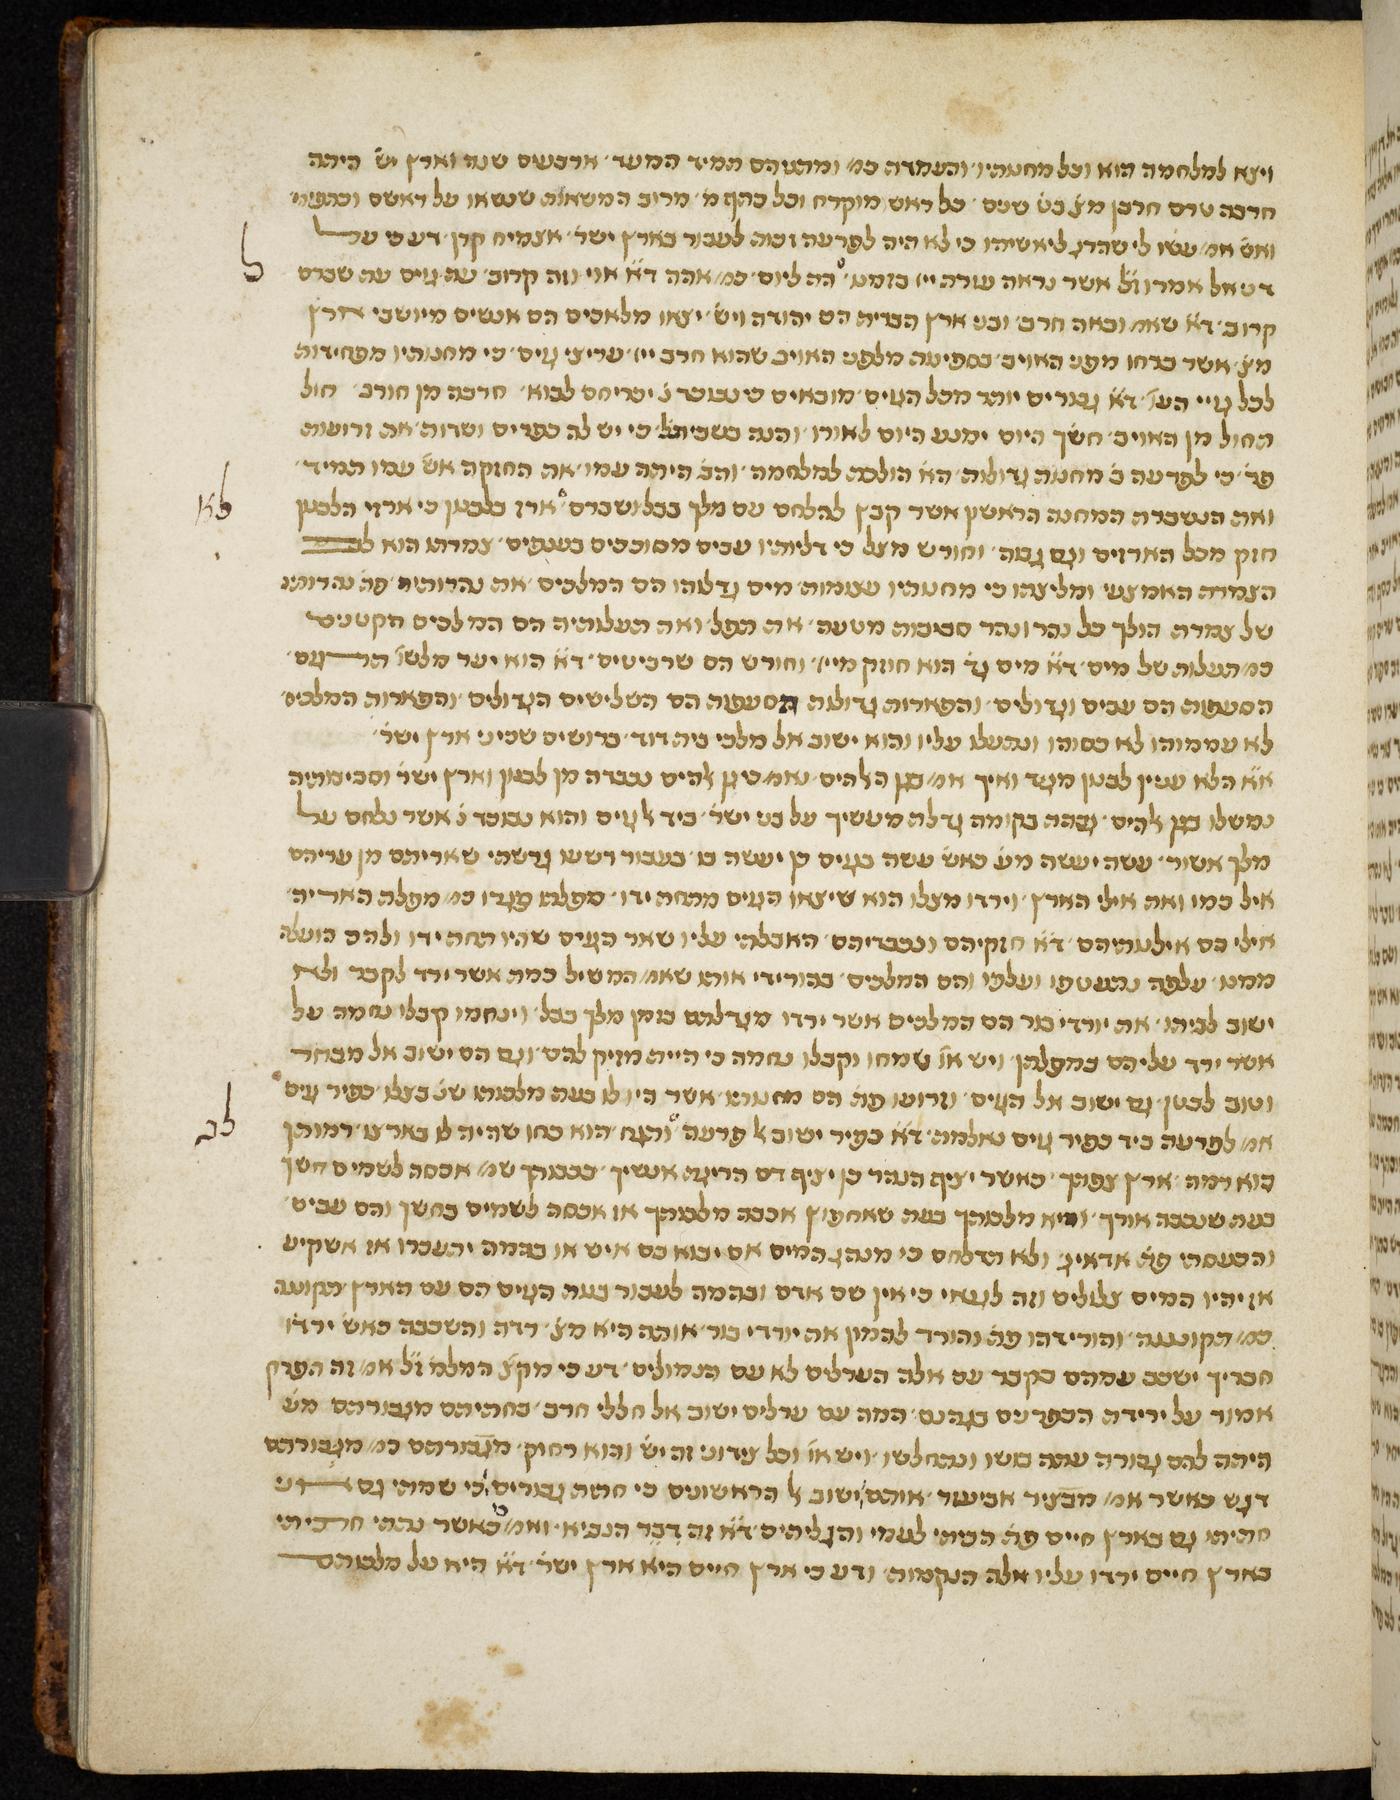 ויצא למלחמה הוא וכל מחנותיו והעמדה כמ' ומתניהם תמיד המעד ארבעים שנה וארץ יש' היתה
חרבה טרם חרבן מצ' בט' שנים כל ראש מוקרח וכל כתף מ' מרוב המשאות שנשאו על ראשם וכתפיהם
ואש' אמ' עשו לי שהרג ליאשיהו כי לא היה לפרעה זכות לעבור בארץ ישר' אצמיח קרן דע כי על
ל
דניאל אמרו ז"ל אשר נראה עזרה יי' בזמנו הה ליום כמ' אהה ד"א אוי וזה קרוב עת גוים עת שברם
קרוב ד"א שאמ' ובאה חרב ובני ארץ הברית הם יהודה ויש' יצאו מלאכים הם אנשים מיושבי ארץ
מצ' אשר ברחו מפני האויב בספינה מלפני האויב שהוא חרב יי' עריצי גוים כי מחנותיו מפחידות
לכל גויי הע' ד"א גבורים יותר מכל הגוים מובאים כי נבוכד נ' יכריחם לבוא חרבה מן חורב חול
החול מן האויב חשך היום ימנע היום לאורו והנה בשביה תל' כי יש לה כפרים ושדות את זרועות
פר' כי לפרעה ב' מחנות גדולות הא' הולכת למלחמה והב' היתה עמו את החזקה אש' עמו תמיד
לא
ואת הנשברת המחנה הראשון אשר קבץ להלחם עם מלך בבל ונשברם ארז בלבנון כי ארזי הלבנון
חזק מכל הארזים וגם גבוה וחורש מצל כי דליותיו עבים מסוככים בענפים צמרתו הוא
הצמרת האמצעי ומליצתו כי מחנותיו עצומות מים גדלוהו הם המלכים את נהרותיה פת' נהרותיו
של צמרת הולך כל נהר ונהר סביבות מטעה את תפל' ואת תעלותיה הם המלכים הקטנים
כמ' תעלות של מים ד"א מים גד' הוא חוזק מיי' וחורש הם שרביטים ד"א הוא יער מלשו' תר' עם
הסעפות הם עבים וגדולים והפארות גדולות הסעפות הם השלישים הגדולים והפארות המלכים
לא עממוהו לא כסוהו ונתעלו עליו והוא ישוב אל מלכי בית דוד ברושים שכיני ארץ ישר'
א"א הלא עניין לבנון מגד ואיך אמ' בגן הא-להים נאמ' כי גן א-להים נכבדה מן לבנון וארץ ישר' וסביבותיה
נמשלו בגן א-להים גבהת בקומה גדלת מעשיך על בני ישר' ביד אל גוים והוא נבוכד נ' אשר נלחם על
מלך אשור עשה יעשה מע' כאש' עשה בגוים כן יעשה בו בעבור רשעו גרשתי שאריתם מן עריהם
איל כמו ואת אילי הארץ וירדו מצלו הוא שיצאו הגוים מתחת ידו מפלתו פגרו כמ' מפלת האריה
אילי כם אילנותיהם ד"א חזקיהם ונכבדיהם האבלתי עליו שאר הגוים שהיו תחת ידו ולהם הועלה
ממנו עלפה נתעטפו ועלפו והם המלכים בהורידי אותו שאמ' המשיל כמת אשר ירד לקבר ולא
ישוב לביתו את יורדי בור הם המלכים אשר ירדו מגדלתם בזמן מלך בבל וינחמו קבלו נחמה על
אשר ירד עליהם במפלתן ויש או' שמחו וקבלו נחמה כי הייה מזיק להם וגם הם ישוב אל מבחר
וטוב לבנון גם ישוב אל הגוים וזרועו פת' הם מחנותו אשר היו לו בעת מלכותו שנ' בצלו כפיר גוים
לב
אמ' לפרעה ביד כפיר גוים נאלמת ד"א כפיר ישוב אל פרעה ותגח הוא כחו שהיה לו בארצו רמותך
כוא רמה ארץ צפתך כאשר יציף הנהר כן יציף דם הריגת אנשיך בכבותך שמ' אכסה לשמים חשך
בעת שנכבה אורך והיא מלכותך בעת שאחפוץ אכבה מלכותך אז אכסה לשמים בחשך והם עבים
והכעסתי פת' אדאיג ולא תדלחם כי מנהג המים אם יבוא בם איש או בהמה יתעכרו אז אשקיע
אז יהיו המים צלולים וזה לגנאי כי אין שם אדם ובהמה לעבור בנות הגוים הם עם הארץ תקוננה
כמ' תקוננה והורידהו פת' נהורד להמון את יורדי בור אותה היא מצ' רדה והשכבה כאש' ירדו
חבריך ישכב עמהם בקבר עם אלה הערלים לא עם הנמולים דע כי מקצ' המלמ' ז"ל אמ' זה הפרק
אמור על ירידת הכפרנים בגהנם המה עם ערלים ישוב אל חללי חרב בחתיתם מגבורתם מע'
היתה להם גבורה עתה בושו ונתחלשו ויש או' וכל צידוני זה יש' והוא רחוק מגבורתם כמ' מגבורתם
דגש כאשר אמ' מבציר אביעזר אותם ישוב אל הראשונים כי חתת גבורים כי שמתי גם
חתיתו גם בארץ חיים פת' הכיתי לעמי והגליתים ד"א זה דבר הנביא ואמ' כאשר נתתי חתיתי
בארץ חיים ירדו עליו אלה הנקמות ודע כי ארץ חיים היא ארץ ישר' ד"א היא על מלכותם